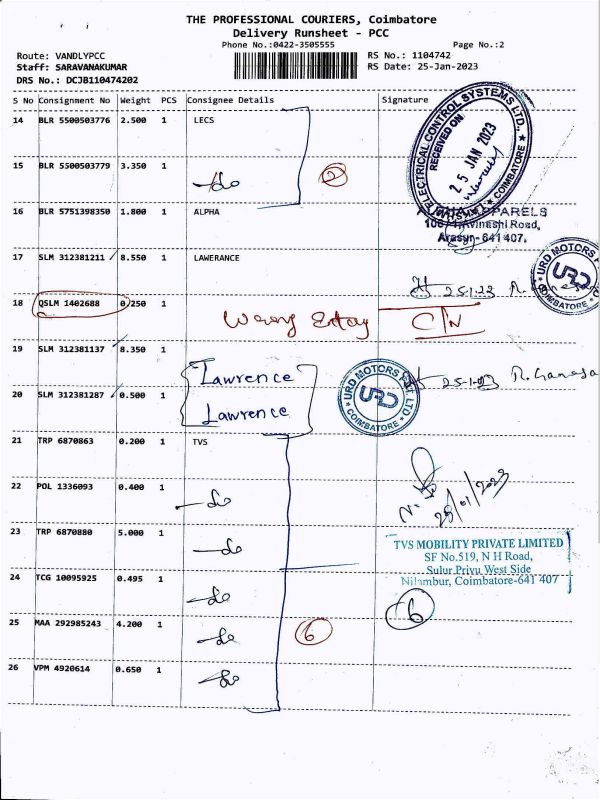 THE PROFESSIONAL COURIERS, Coimbatore
Delivery Runsheet - PCC
Phone No.:0422-3505555
Page No.:2
Route: VANDLYPCC
RS No.: 1104742
Staff: SARAVANAKUMAR
RS Date: 25-Jan-2023
DRS No.: DCJB110474202
S No Consignment No Weight PCS Consignee Details Signature
14 BLR 5500503776 2.500 1 LECS
ELECTRICAL CONTROL SYSTEMS LTD.,
RECEIVED ON
25 JAN 2023
COIMBATORE
15 BLR 5500503779 3.350 1 -do
2
16 BLR 5751398350 1.800 1 ALPHA
APPARELS
Avinashi Road,
Arasur-641 407.
17 SLM 312381211 8.550 1 LAWERANCE
25.1.23
URD MOTORS
URD
COIMBATORE
18 QSLM 1402688 0.250 1 Wrong Entry C/N
19 SLM 312381137 8.350 1 Lawrence
25-1-23 R. Ganesa
URD MOTORS PVT. LTD
URD
COIMBATORE
20 SLM 312381287 0.500 1 Lawrence
21 TRP 6870863 0.200 1 TVS
22 POL 1336093 0.400 1 -do
25/01/2023
23 TRP 6870880 5.000 1 -do
TVS MOBILITY PRIVATE LIMITED
SF No.519, N H Road,
Sulur Privu West Side
Nilambur, Coimbatore-641 407
24 TCG 10095925 0.495 1 -do
6
25 MAA 292985243 4.200 1 -do
6
26 VPM 4920614 0.650 1 -do